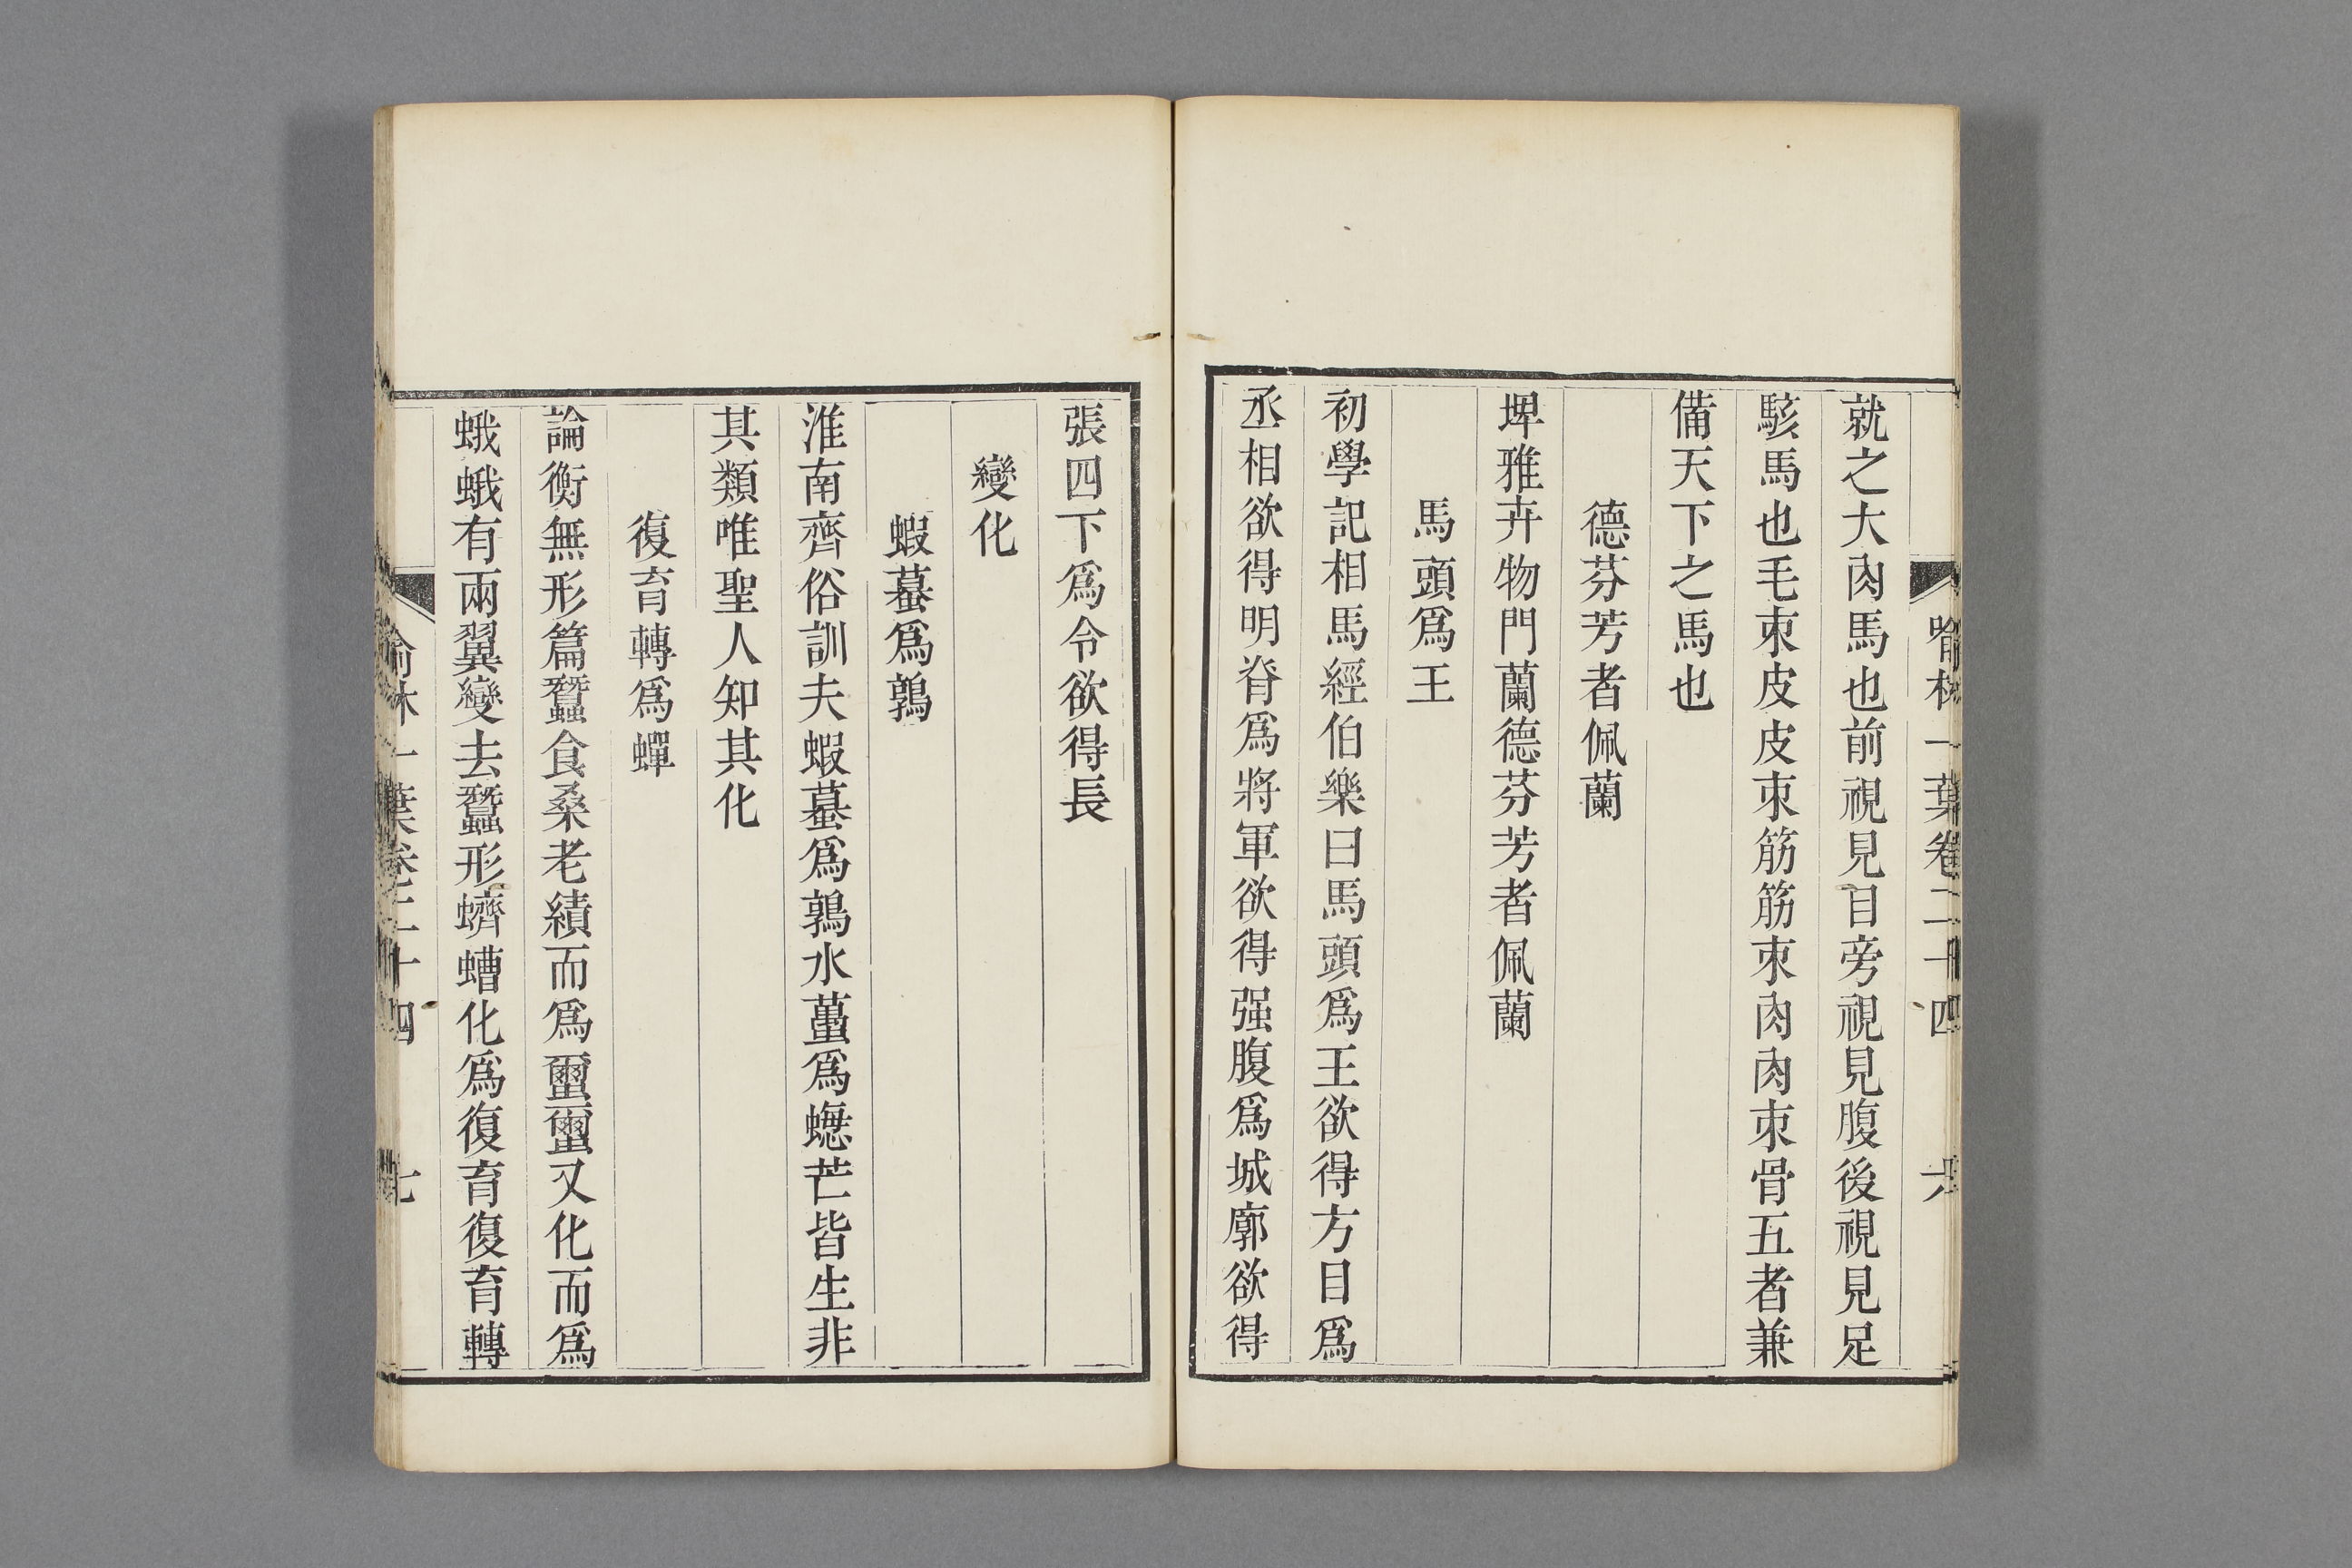 喻林一葉卷二十四 六
就之大肉馬也前視見目旁視見腹後視見足
駭馬也毛朿皮皮朿筋筋朿肉肉朿骨五者兼
備天下之馬也
德芬芳者佩蘭
埤雅卉物門蘭德芬芳者佩蘭
馬頭爲王
初學記相馬經伯樂曰馬頭爲王欲得方目爲
丞相欲得明脊爲將軍欲得强腹爲城廓欲得
張四下爲令欲得長
變化
蝦蟇爲鶉
淮南齊俗訓夫蝦蟇爲鶉水蠆爲蟌芒皆生非
其類唯聖人知其化
復育轉爲蟬
論衡無形篇蠶食桑老績而爲蠒蠒又化而爲
蛾蛾有兩翼變去蠶形蠐螬化爲復育復育轉
喻林一葉卷二十四 七